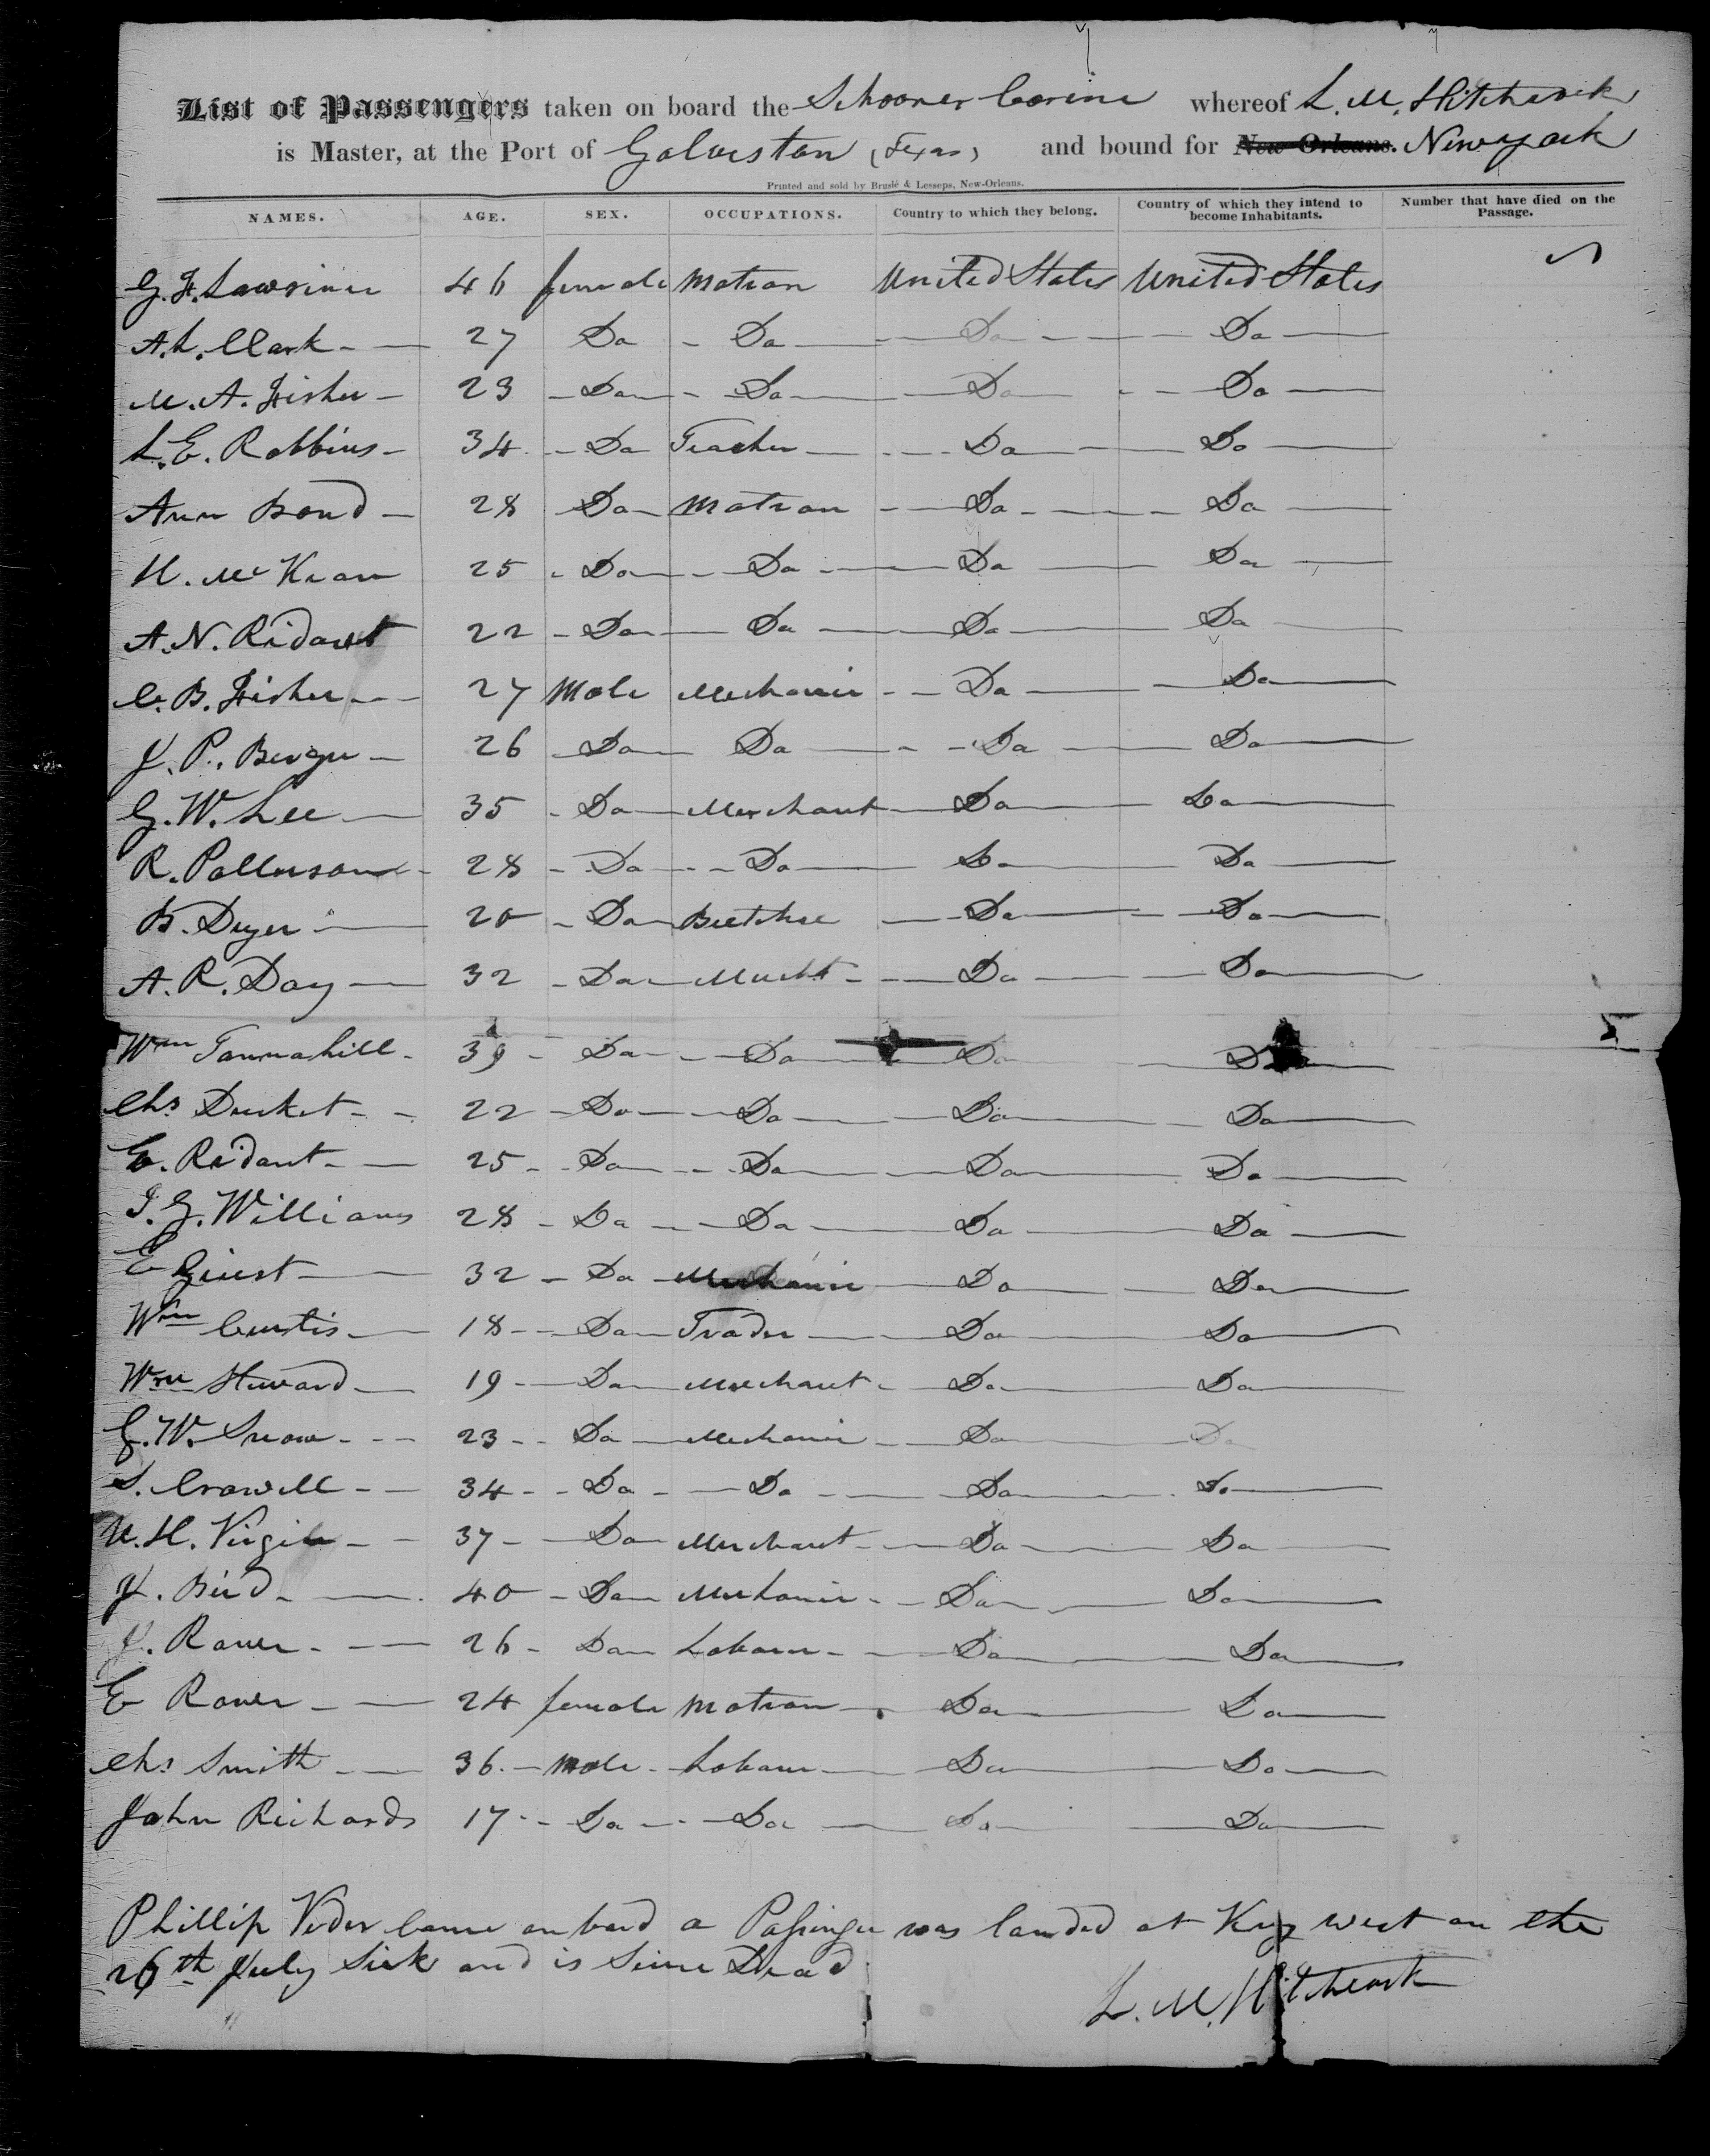 List of Passengers taken on board the Schooner Corine whereof L. M. Hitchcock
is Master, at the Port of Galveston (Texas) and bound for New-Orleans. New york
Printed and sold by Bruslé & Lesseps, New-Orleans.
NAMES. AGE. SEX. OCCUPATIONS. Country to which they belong. Country of which they intend to become Inhabitants. Number that have died on the Passage.
G. F. Lawrince 46 female Matron United States United States
A. L. Clark 27 Do Do Do Do
M. A. Fisher 23 Do Do Do Do
L. E. Robbins 34 Do Teacher Do Do
Ann Bond 28 Do Matron Do Do
H. Mc Kean 25 Do Do Do Do
A. N. Ridout 22 Do Do Do Do
C. B. Fisher 27 Male Mechanic Do Do
J. P. Berger 26 Do Do Do Do
G. W. Lee 35 Do Merchant Do Do
R. Patterson 28 Do Do Do Do
B. Dyer 20 Do Butcher Do Do
A. R. Day 32 Do Mercht Do Do
Wm Tannahill 39 Do Do Do Do
Chs Ducket 22 Do Do Do Do
E. Ridout 25 Do Do Do Do
J. G. Williams 28 Do Do Do Do
E Guest 32 Do Mechanic Do Do
Wm Curtis 18 Do Trader Do Do
Wm Steward 19 Do Merchant Do Do
G. W. Snow 23 Do Mechanic Do Do
S. Crowell 34 Do Do Do Do
H. Virgil 37 Do Merchant Do Do
J. Bird 40 Do Mechanic Do Do
J. Rower 26 Do Laborer Do Do
E Rower 24 female Matron Do Do
Chs Smith 36 Male Laborer Do Do
John Richards 17 Do Do Do Do
Phillip Veder came on bord a Passinger was landed at Key west on the
26th July Sick and is Since Dead
L. M. Hitchcock